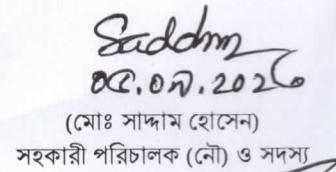 Saddam
০৫.০৯.২০২৬
(মোঃ সাদ্দাম হোসেন)
সহকারী পরিচালক (নৌ) ও সদস্য